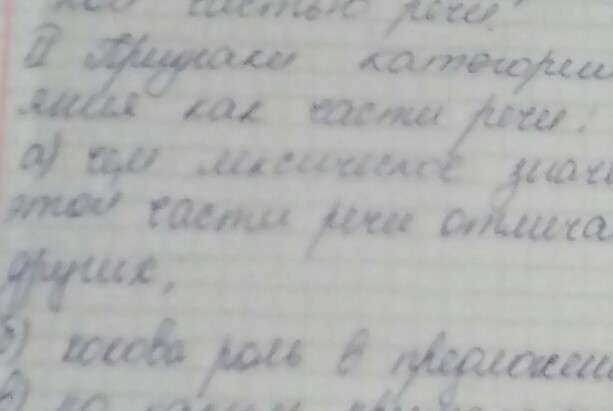 частью речи.
II Признаки категории
яния как части речи:
а) чем лексическое знач
этой части речи отлича
других,
б) какова роль в предложени